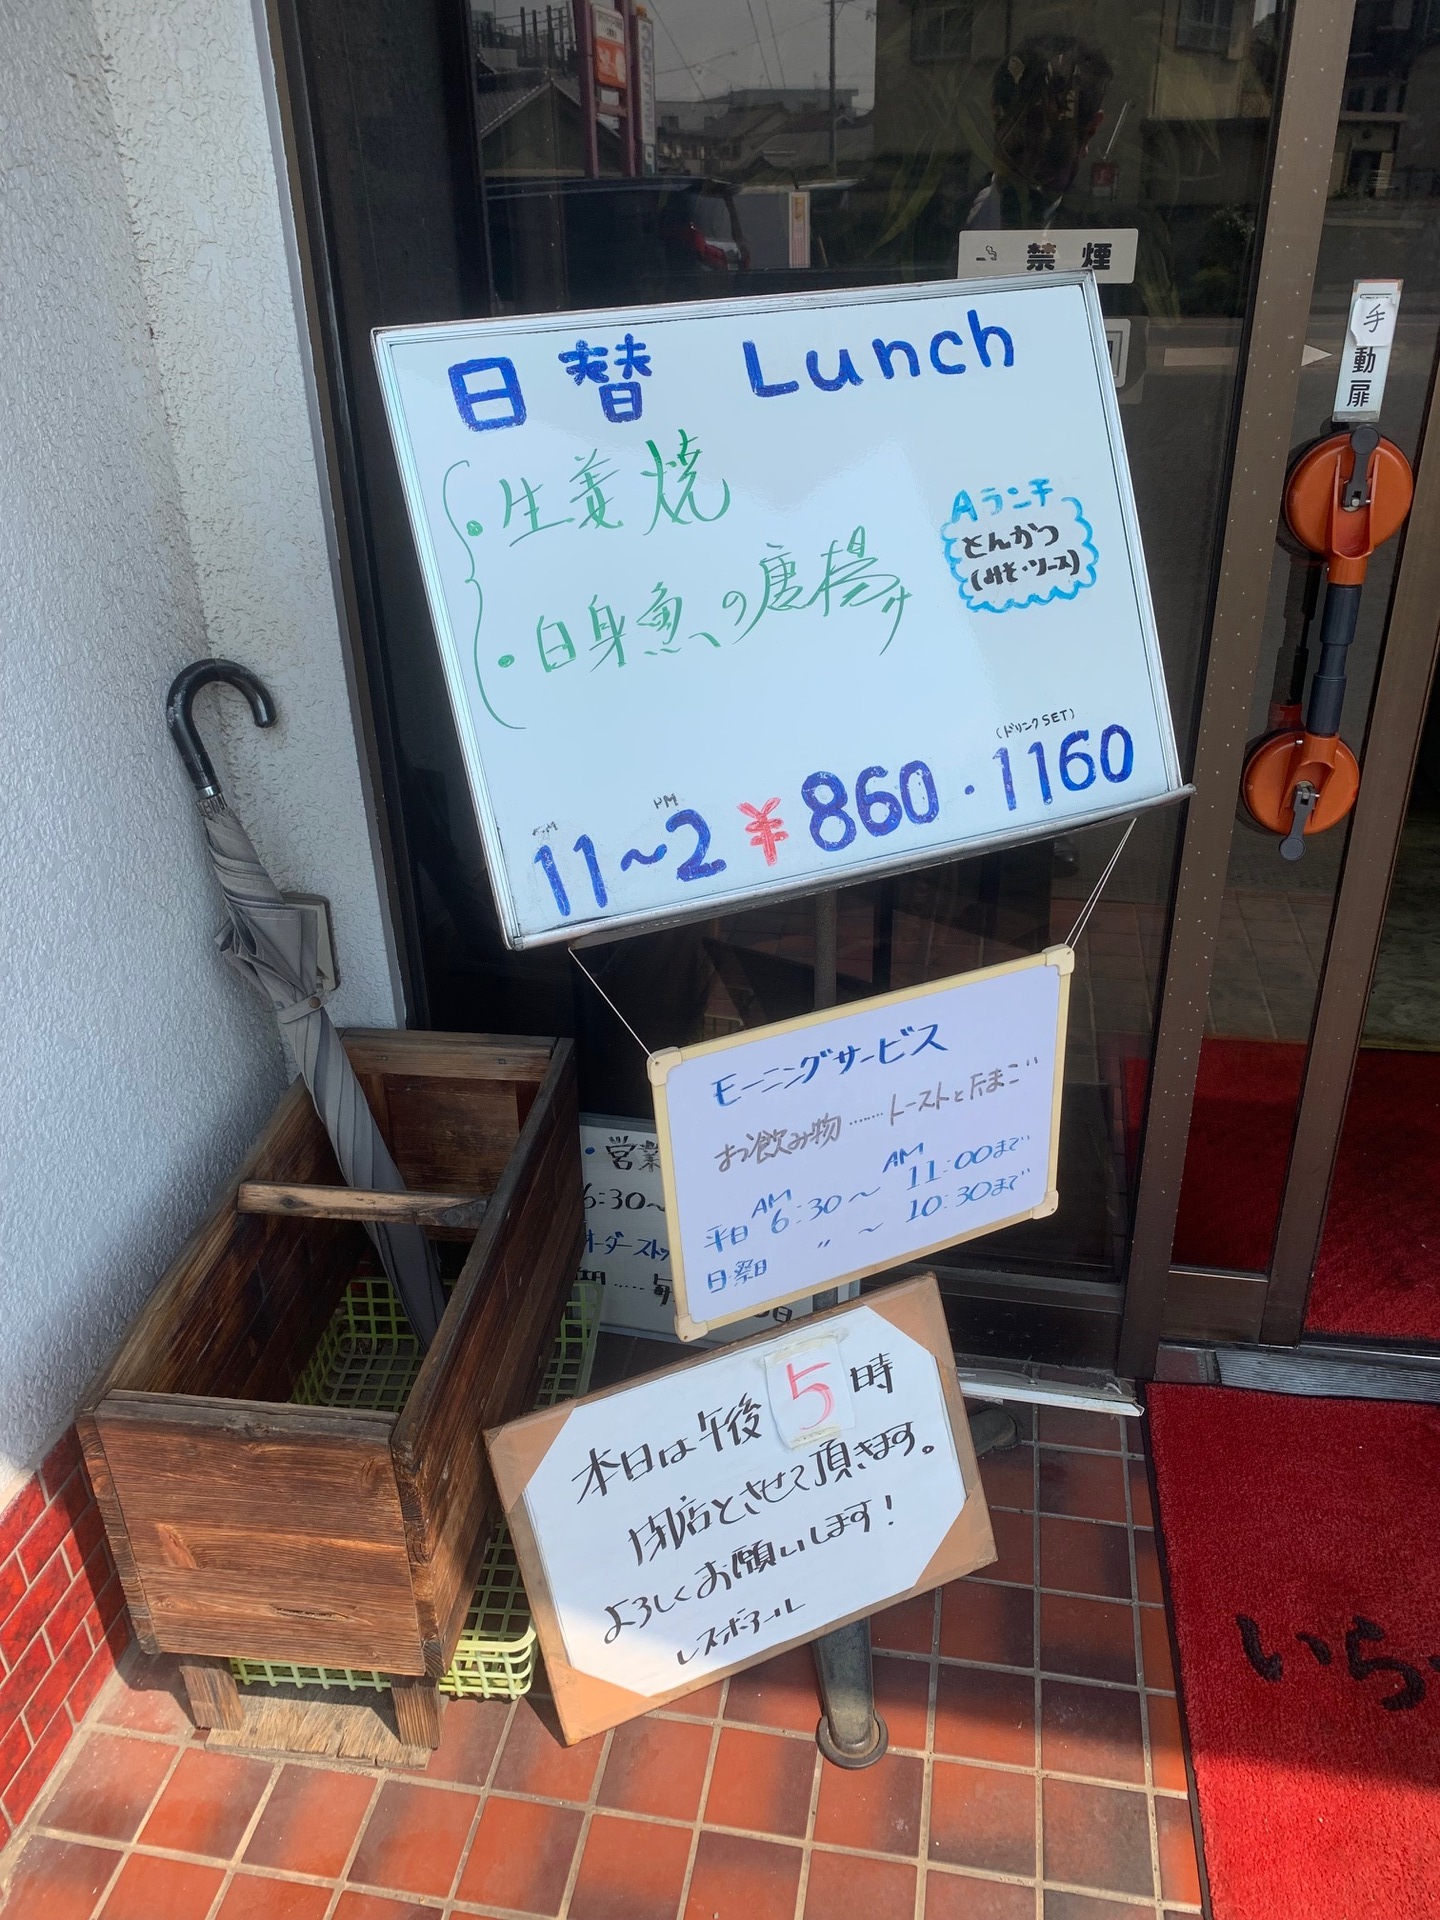 禁煙
手動扉
日替 Lunch
・生姜焼
・白身魚の唐揚げ
Aランチ
とんかつ
(みそ・ソース)
(ドリンクSET)
AM 11~PM 2 ¥860・1160
モーニングサービス
お飲み物……トーストとたまご
平日 AM 6:30~AM 11:00まで
日・祭日 〃 ~ 10:30まで
・営業
6:30~
オーダースト
本日は午後5時
閉店とさせて頂きます。
よろしくお願いします!
レスポワール
いち